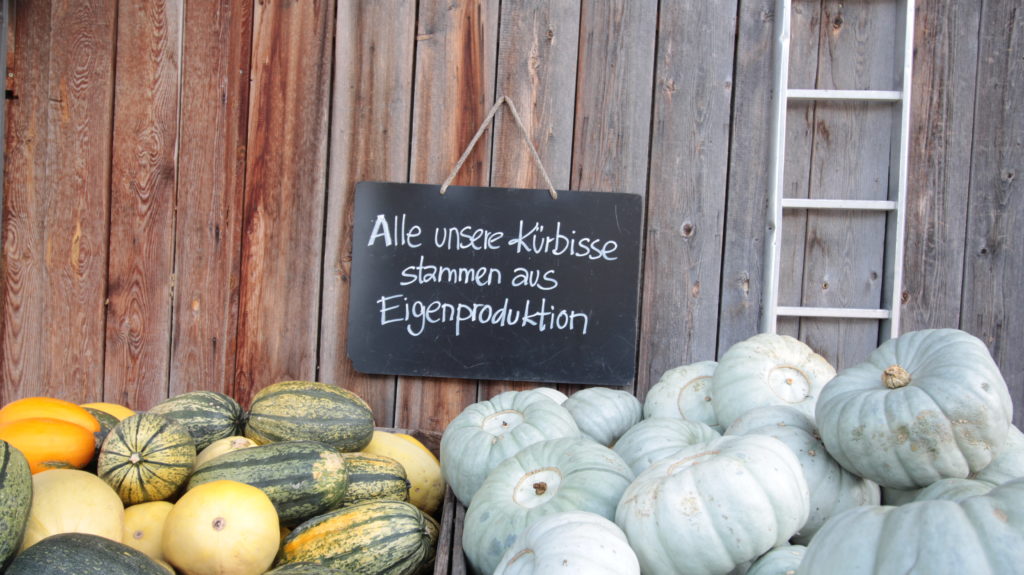 Alle unsere Kürbisse
stammen aus
Eigenproduktion